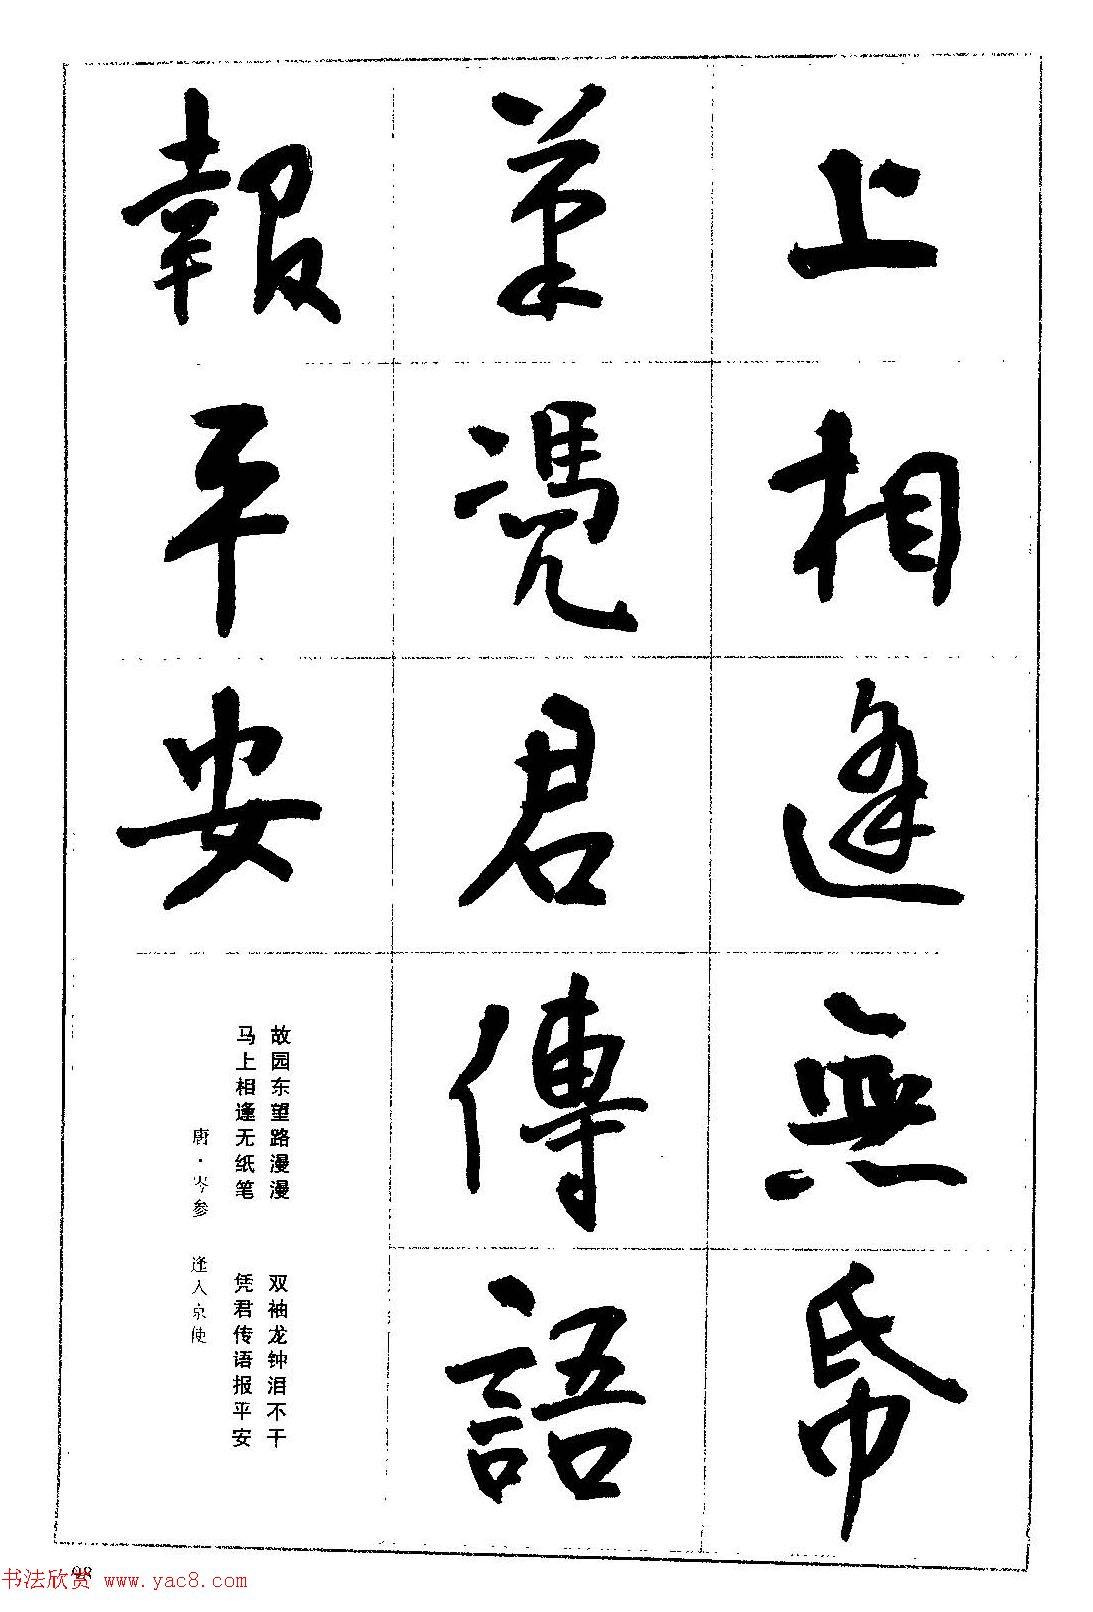 上相逢無帋
笔憑君傳語
報平安
故园东望路漫漫　双袖龙钟泪不干
马上相逢无纸笔　凭君传语报平安
唐·岑参　逢入京使
98
书法欣赏 www.yac8.com